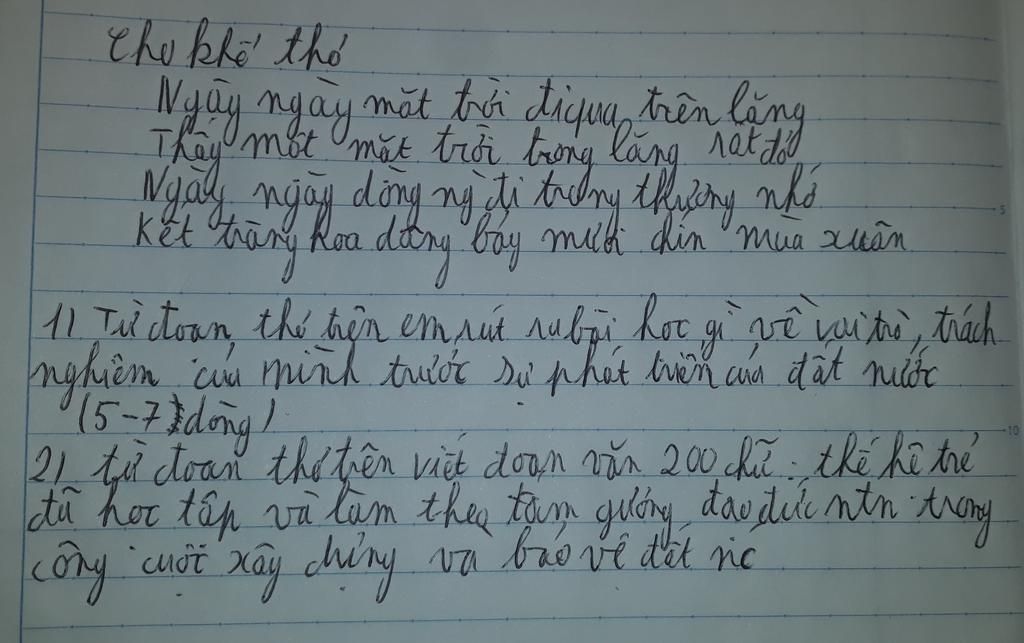 Cho khổ thơ
Ngày ngày mặt trời đi qua trên lăng
Thấy một mặt trời trong lăng rất đỏ
Ngày ngày dòng ng` đi trong thương nhớ
Kết tràng hoa dâng bảy mươi chín mùa xuân
1) Từ đoạn thơ trên em rút ra bài học gì về vai trò, trách
nghiệm của mình trước sự phát triển của đất nước
(5-7 dòng)
2) từ đoạn thơ trên viết đoạn văn 200 chữ: thế hệ trẻ
đã học tập và làm theo tấm gương đạo đức ntn trong
công cuộc xây dựng và bảo vệ đất nc
5
10